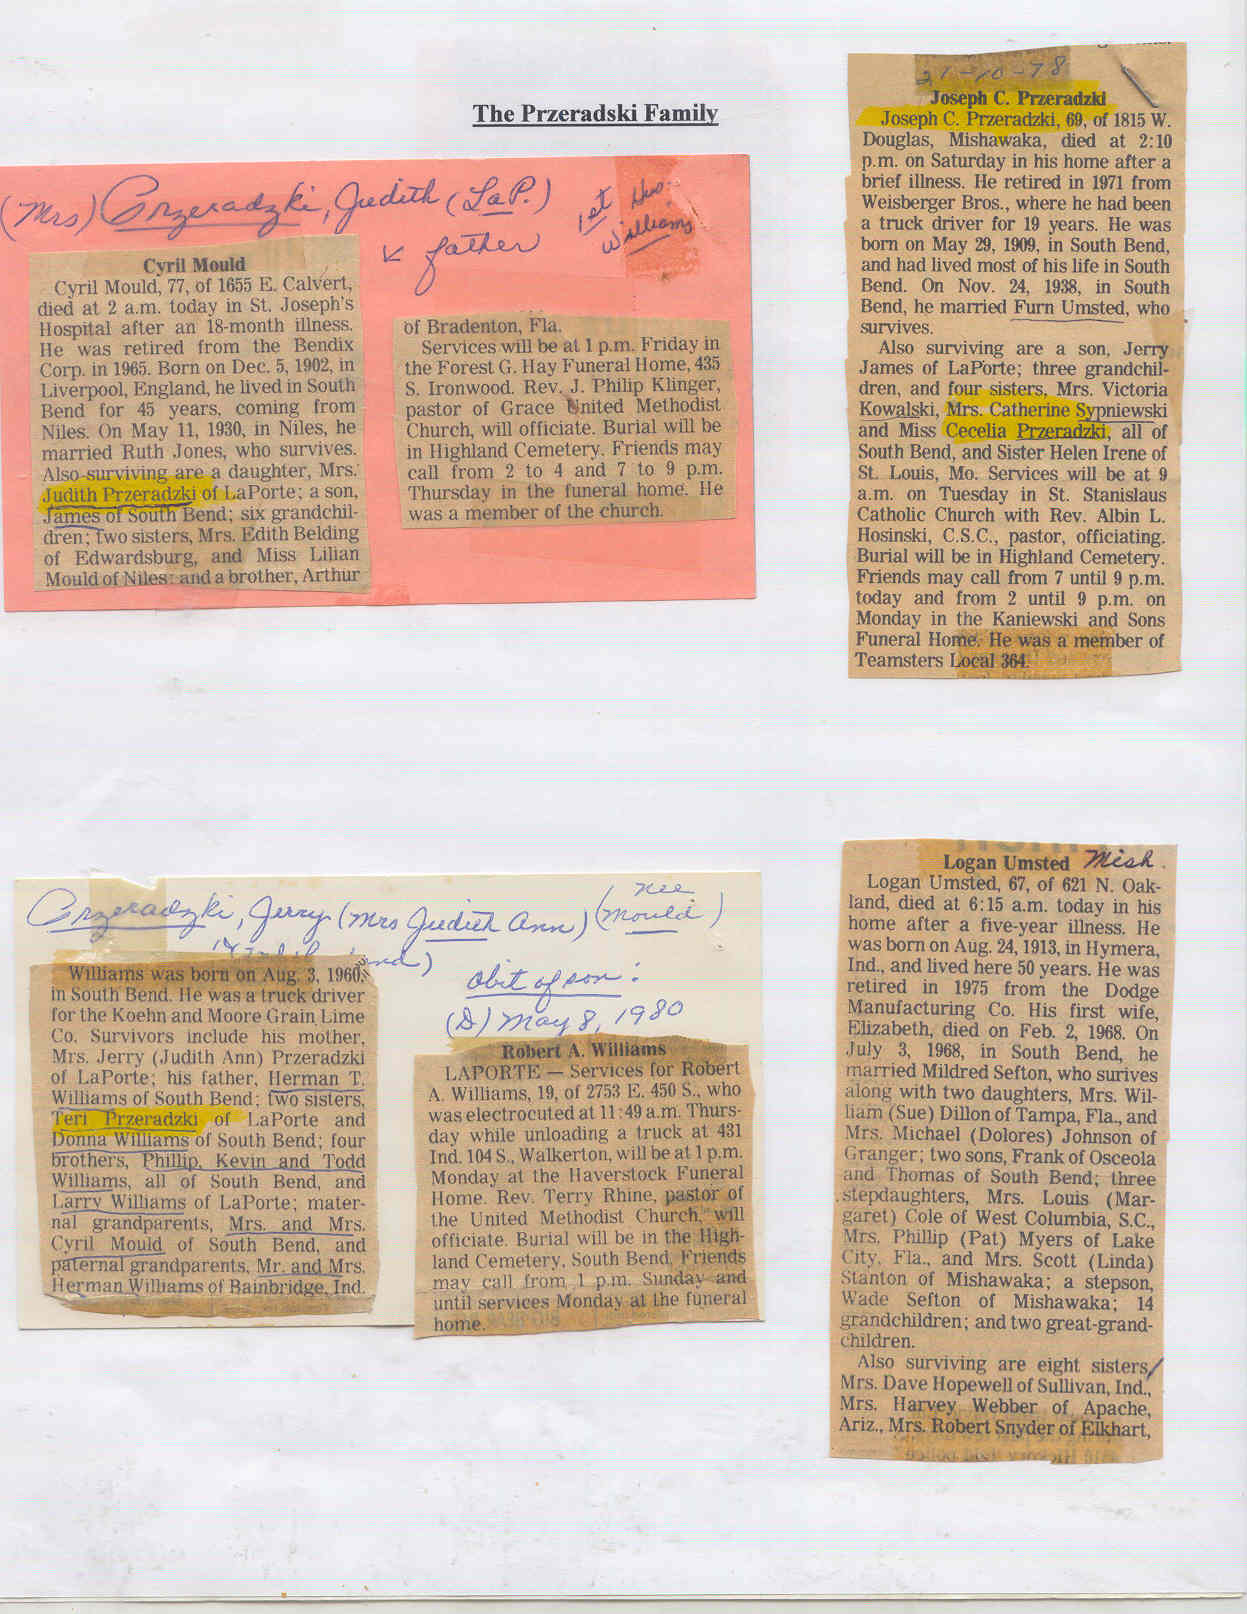 The Przeradski Family
(Mrs) Przeradzki, Judith (LaP.)
↙ father
1st Hus.
Williams
Cyril Mould
Cyril Mould, 77, of 1655 E. Calvert,
died at 2 a.m. today in St. Joseph's
Hospital after an 18-month illness.
He was retired from the Bendix
Corp. in 1965. Born on Dec. 5, 1902, in
Liverpool, England, he lived in South
Bend for 45 years, coming from
Niles. On May 11, 1930, in Niles, he
married Ruth Jones, who survives.
Also surviving are a daughter, Mrs.
Judith Przeradzki of LaPorte; a son,
James of South Bend; six grandchil-
dren; two sisters, Mrs. Edith Belding
of Edwardsburg, and Miss Lilian
Mould of Niles; and a brother, Arthur
of Bradenton, Fla.
Services will be at 1 p.m. Friday in
the Forest G. Hay Funeral Home, 435
S. Ironwood. Rev. J. Philip Klinger,
pastor of Grace United Methodist
Church, will officiate. Burial will be
in Highland Cemetery. Friends may
call from 2 to 4 and 7 to 9 p.m.
Thursday in the funeral home. He
was a member of the church.
-10-78
Joseph C. Przeradzki
Joseph C. Przeradzki, 69, of 1815 W.
Douglas, Mishawaka, died at 2:10
p.m. on Saturday in his home after a
brief illness. He retired in 1971 from
Weisberger Bros., where he had been
a truck driver for 19 years. He was
born on May 29, 1909, in South Bend,
and had lived most of his life in South
Bend. On Nov. 24, 1938, in South
Bend, he married Furn Umsted, who
survives.
Also surviving are a son, Jerry
James of LaPorte; three grandchil-
dren, and four sisters, Mrs. Victoria
Kowalski, Mrs. Catherine Sypniewski
and Miss Cecelia Przeradzki, all of
South Bend, and Sister Helen Irene of
St. Louis, Mo. Services will be at 9
a.m. on Tuesday in St. Stanislaus
Catholic Church with Rev. Albin L.
Hosinski, C.S.C., pastor, officiating.
Burial will be in Highland Cemetery.
Friends may call from 7 until 9 p.m.
today and from 2 until 9 p.m. on
Monday in the Kaniewski and Sons
Funeral Home. He was a member of
Teamsters Local 364.
Przeradzki, Jerry (Mrs Judith Ann) (nee Mould)
obit of son:
(D) May 8, 1980
Williams was born on Aug. 3, 1960,
in South Bend. He was a truck driver
for the Koehn and Moore Grain Lime
Co. Survivors include his mother,
Mrs. Jerry (Judith Ann) Przeradzki
of LaPorte; his father, Herman T.
Williams of South Bend; two sisters,
Teri Przeradzki of LaPorte and
Donna Williams of South Bend; four
brothers, Phillip, Kevin and Todd
Williams, all of South Bend, and
Larry Williams of LaPorte; mater-
nal grandparents, Mrs. and Mrs.
Cyril Mould of South Bend, and
paternal grandparents, Mr. and Mrs.
Herman Williams of Bainbridge, Ind.
Robert A. Williams
LAPORTE — Services for Robert
A. Williams, 19, of 2753 E. 450 S., who
was electrocuted at 11:49 a.m. Thurs-
day while unloading a truck at 431
Ind. 104 S., Walkerton, will be at 1 p.m.
Monday at the Haverstock Funeral
Home. Rev. Terry Rhine, pastor of
the United Methodist Church, will
officiate. Burial will be in the High-
land Cemetery, South Bend. Friends
may call from 1 p.m. Sunday and
until services Monday at the funeral
home.
Logan Umsted Mish.
Logan Umsted, 67, of 621 N. Oak-
land, died at 6:15 a.m. today in his
home after a five-year illness. He
was born on Aug. 24, 1913, in Hymera,
Ind., and lived here 50 years. He was
retired in 1975 from the Dodge
Manufacturing Co. His first wife,
Elizabeth, died on Feb. 2, 1968. On
July 3, 1968, in South Bend, he
married Mildred Sefton, who surives
along with two daughters, Mrs. Wil-
liam (Sue) Dillon of Tampa, Fla., and
Mrs. Michael (Dolores) Johnson of
Granger; two sons, Frank of Osceola
and Thomas of South Bend; three
stepdaughters, Mrs. Louis (Mar-
garet) Cole of West Columbia, S.C.,
Mrs. Phillip (Pat) Myers of Lake
City, Fla., and Mrs. Scott (Linda)
Stanton of Mishawaka; a stepson,
Wade Sefton of Mishawaka; 14
grandchildren; and two great-grand-
children.
Also surviving are eight sisters,
Mrs. Dave Hopewell of Sullivan, Ind.,
Mrs. Harvey Webber of Apache,
Ariz., Mrs. Robert Snyder of Elkhart,